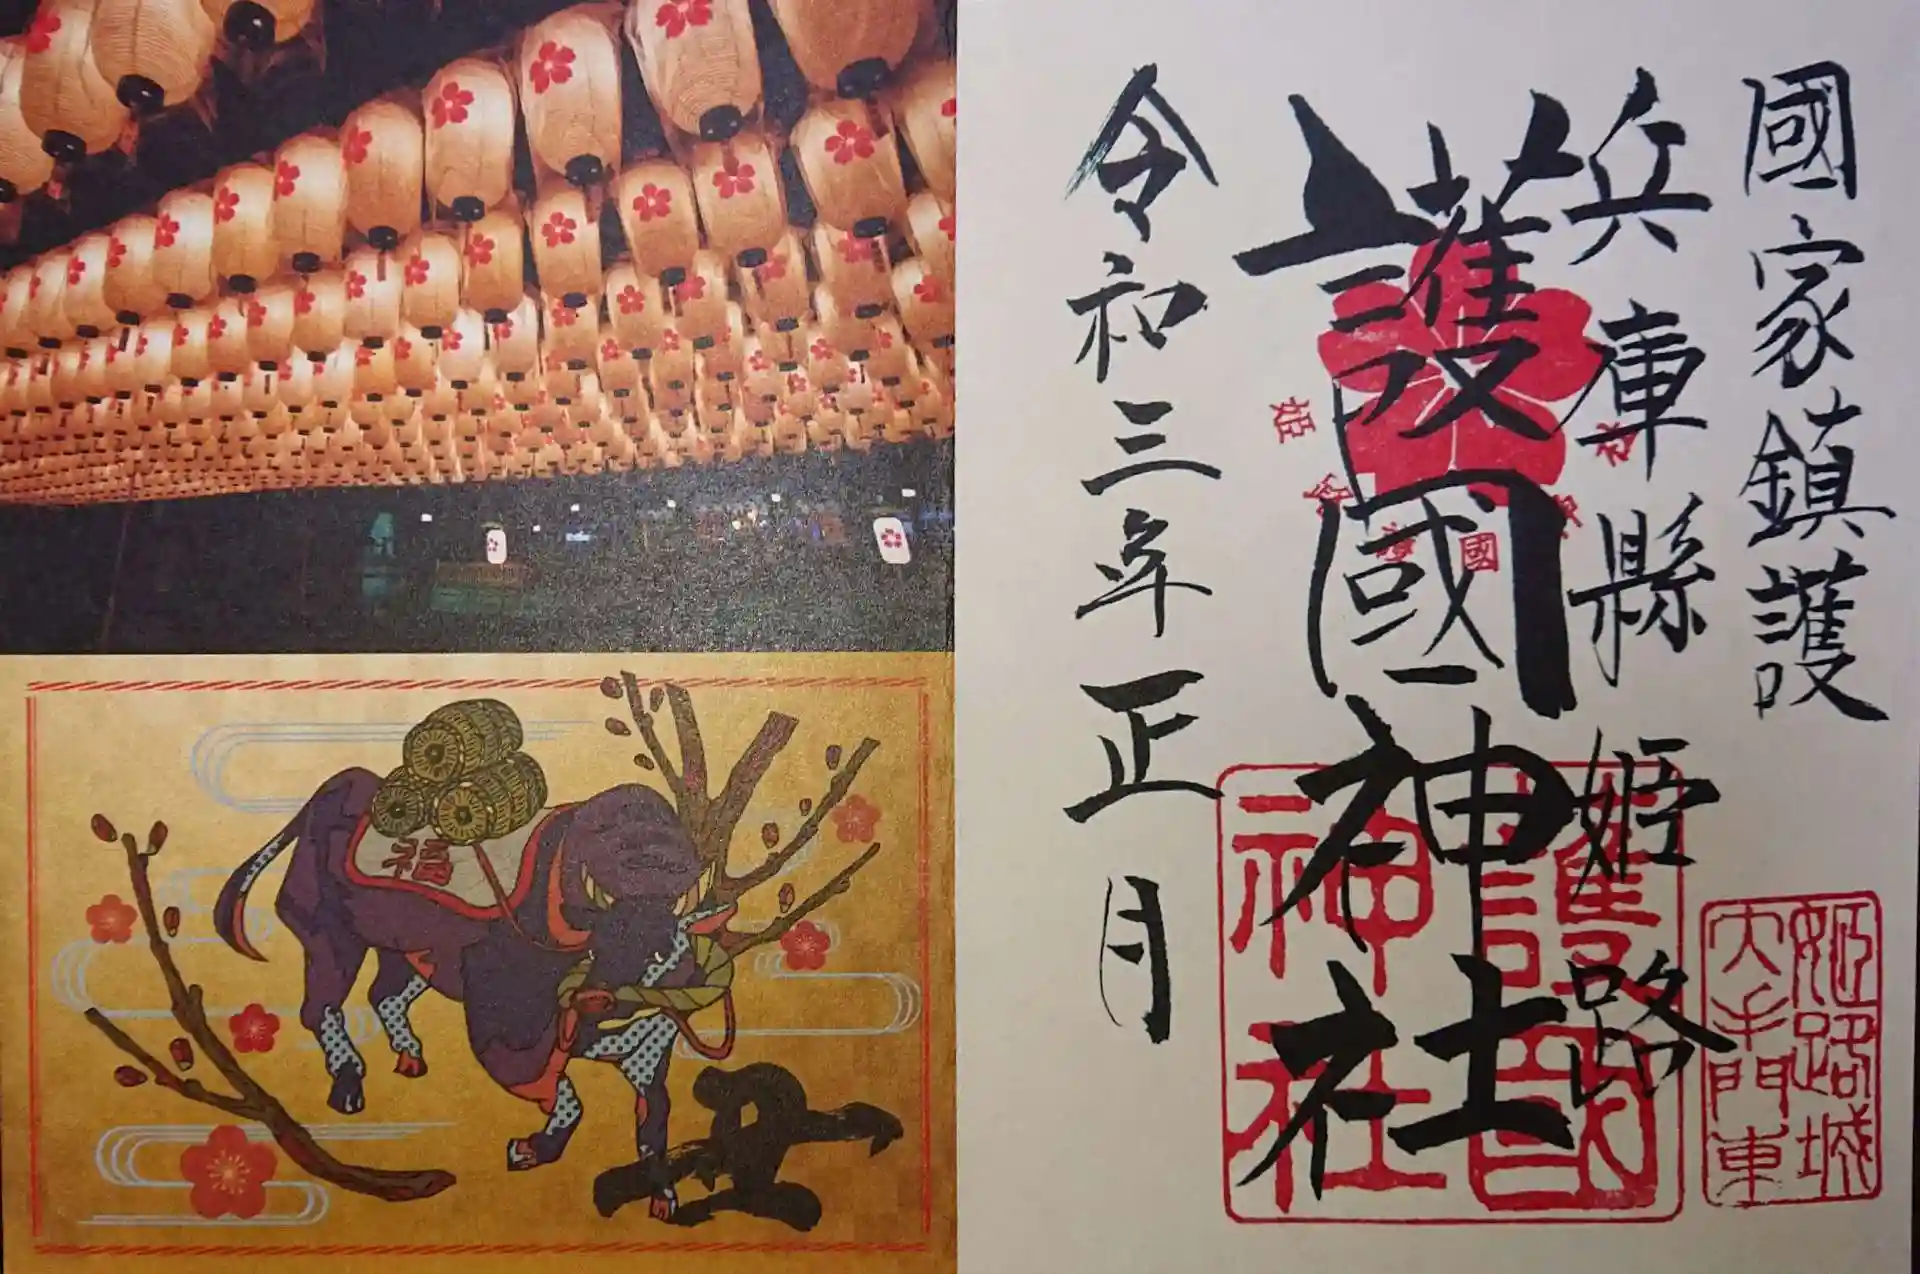 國家鎮護
兵庫縣姫路
護國神社
令和三年正月
姫路護國神社
護國
神社
姫路城
大手門東
福
丑